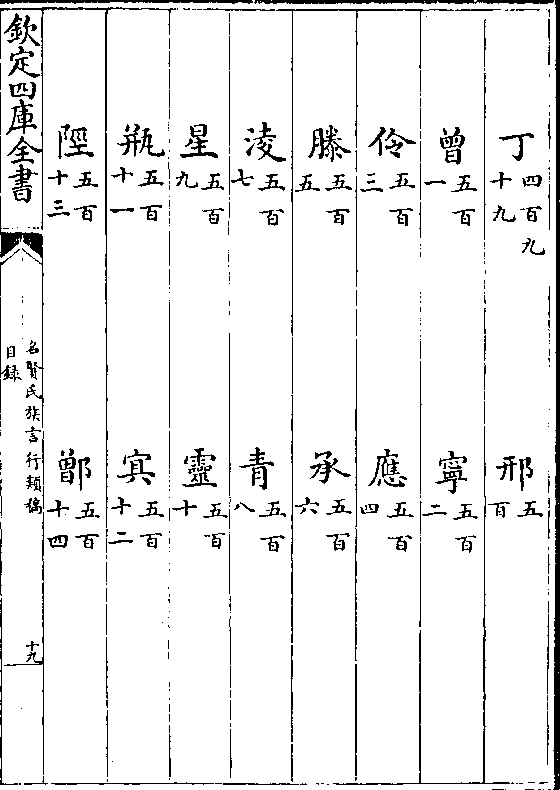 丁四百九十九　邢五百
曾五百一　寧五百二
伶五百三　應五百四
滕五百五　承五百六
淩五百七　青五百八
星五百九　靈五百十
瓶五百十一　寘五百十二
陘五百十三　鄫五百十四
欽定四庫全書
名賢氏族言行類稿
目録
十九